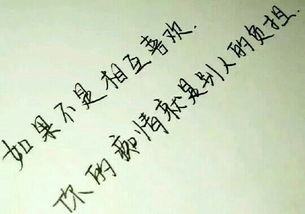 如果不是相互喜欢.
你的痴情就是别人的负担.